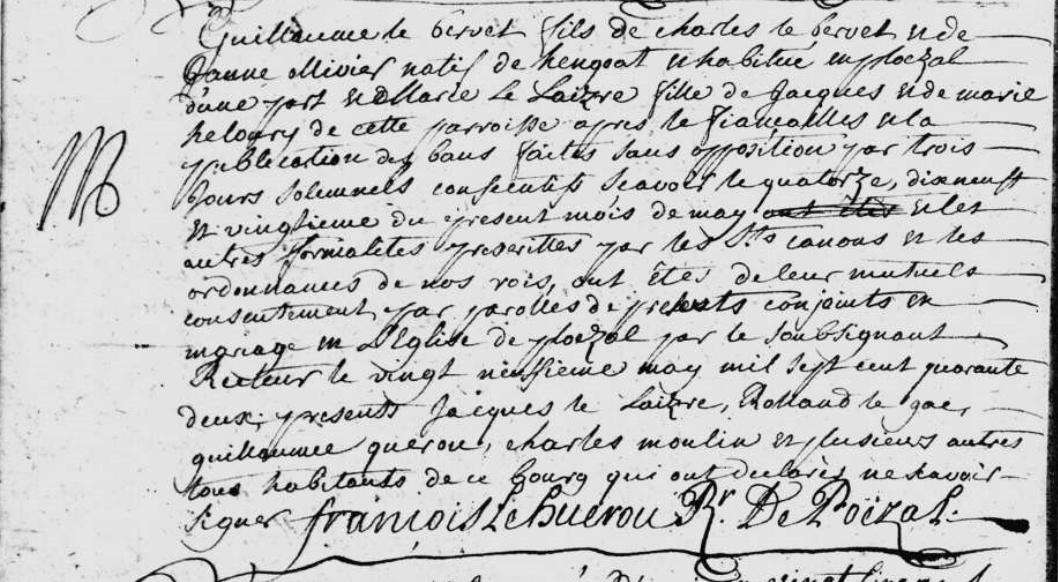 Guillaume le bervet fils de charles le bervet et de
Janne ollivier natif de hengoat et habitué en ploezal
d'une part et Marie Le Laizre fille de Jacques et de marie
heloury de cette parroisse apres le fiancailles et la
publication des bans faites sans opposition par trois
Jours solemnels consecutifs scavoir le quatorze, dixneuff
et vingtieme du present mois de may ont êtés et les
autres formalites prescrittes par les Sts canons et les
ordonnances de nos rois, ont êtés de leur mutuels
consentement par parolles de presents conjoints en
mariage en L'Eglise de ploezal par le soubsignant
Recteur le vingt neuffieme may mil sept cent quarante
deux; presents Jacques le Laizre, Rolland le gac,
guillaumee querou, charles moulin et plusieurs autres
tous habitants de ce bourg qui ont declarés ne scavoir
signer françois Le huerou Rr. De Ploizal.
M